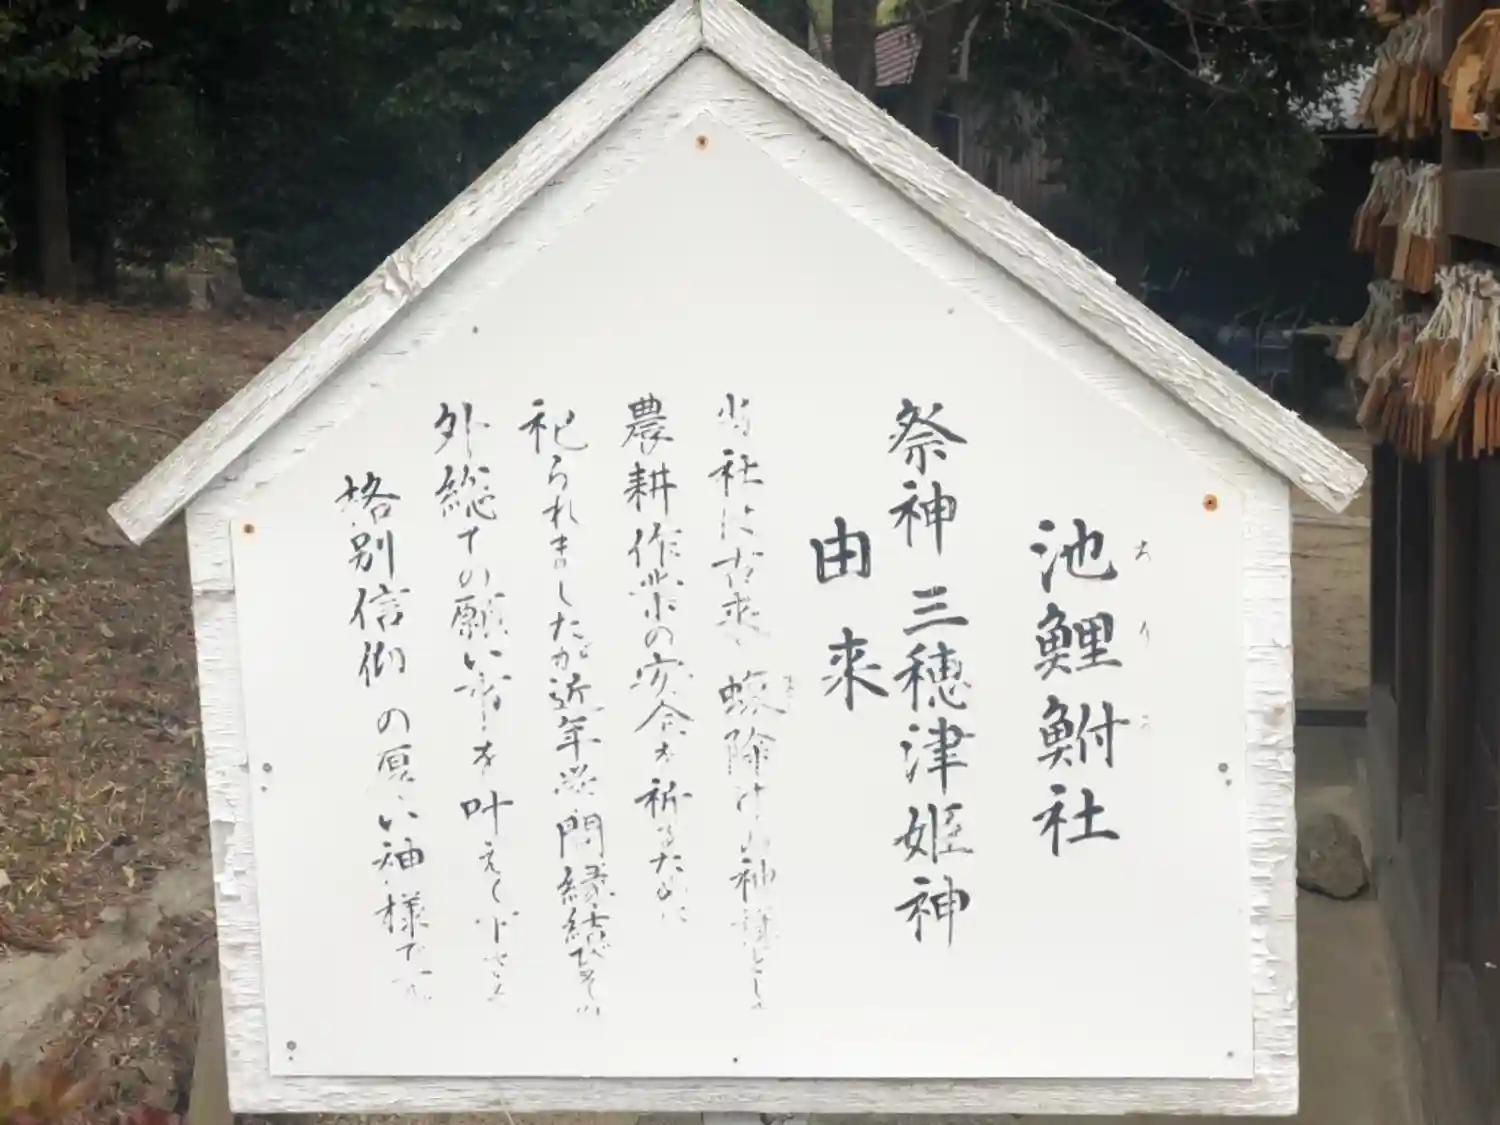 池鯉鮒社
祭神 三穂津姫神
由来
当社は古来、蝮除けの神様として
農耕作業の安全を祈るために
祀られましたが近年学問縁結びその
外総ての願い事を叶えて下さる
格別信仰の厚い神様です